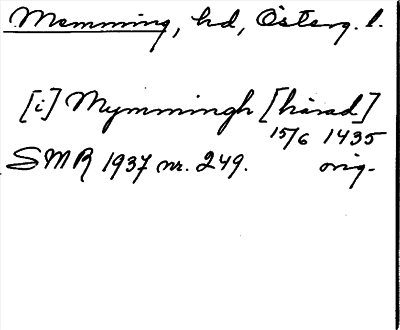 Memming, hd, Österg. l.
[i] Mymmingh [härad]
15/6 1435
SMR 1937 nr. 249. orig.